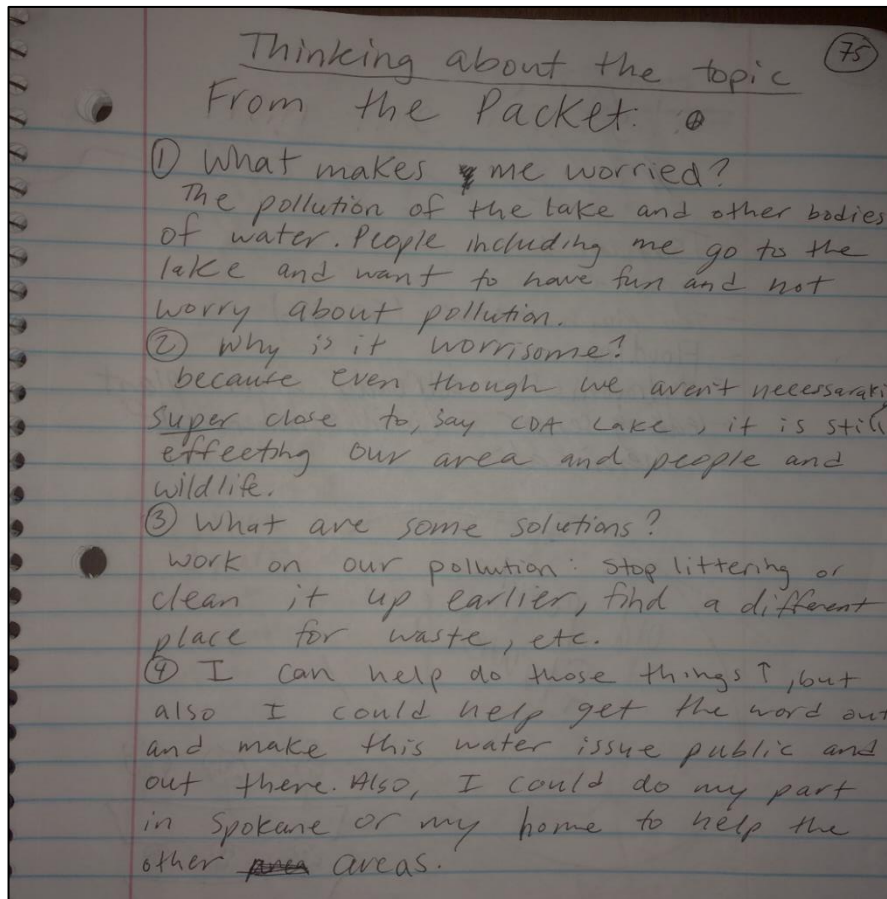 Thinking about the topic (75)
From the Packet.
① What makes me worried?
The pollution of the lake and other bodies
of water. People including me go to the
lake and want to have fun and not
worry about pollution.
② Why is it worrisome?
because even though we aren't necessaraki
super close to, say CDA Lake, it is still
effecting our area and people and
wildlife.
③ What are some solutions?
Work on our pollution: Stop littering or
clean it up earlier, find a different
place for waste, etc.
④ I can help do those things ↑, but
also I could help get the word out
and make this water issue public and
out there. Also, I could do my part
in Spokane or my home to help the
other areas.